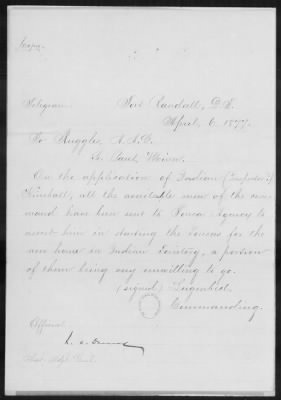 Copy.
Telegram.
Fort Randall, D.T.
April, 6. 1877.
To Ruggles, A.A.G.
St. Paul, Minn.
On the application of Indian (Inspector?)
Kimball, all the available men of the com-
mand have been sent to Ponca Agency to
assist him in starting the Poncas for the
new home in Indian Territory, a portion
of them being very unwilling to go.
(signed) Lugenbeel.
Commanding.
Official.
Asst. Adjt. Genl.